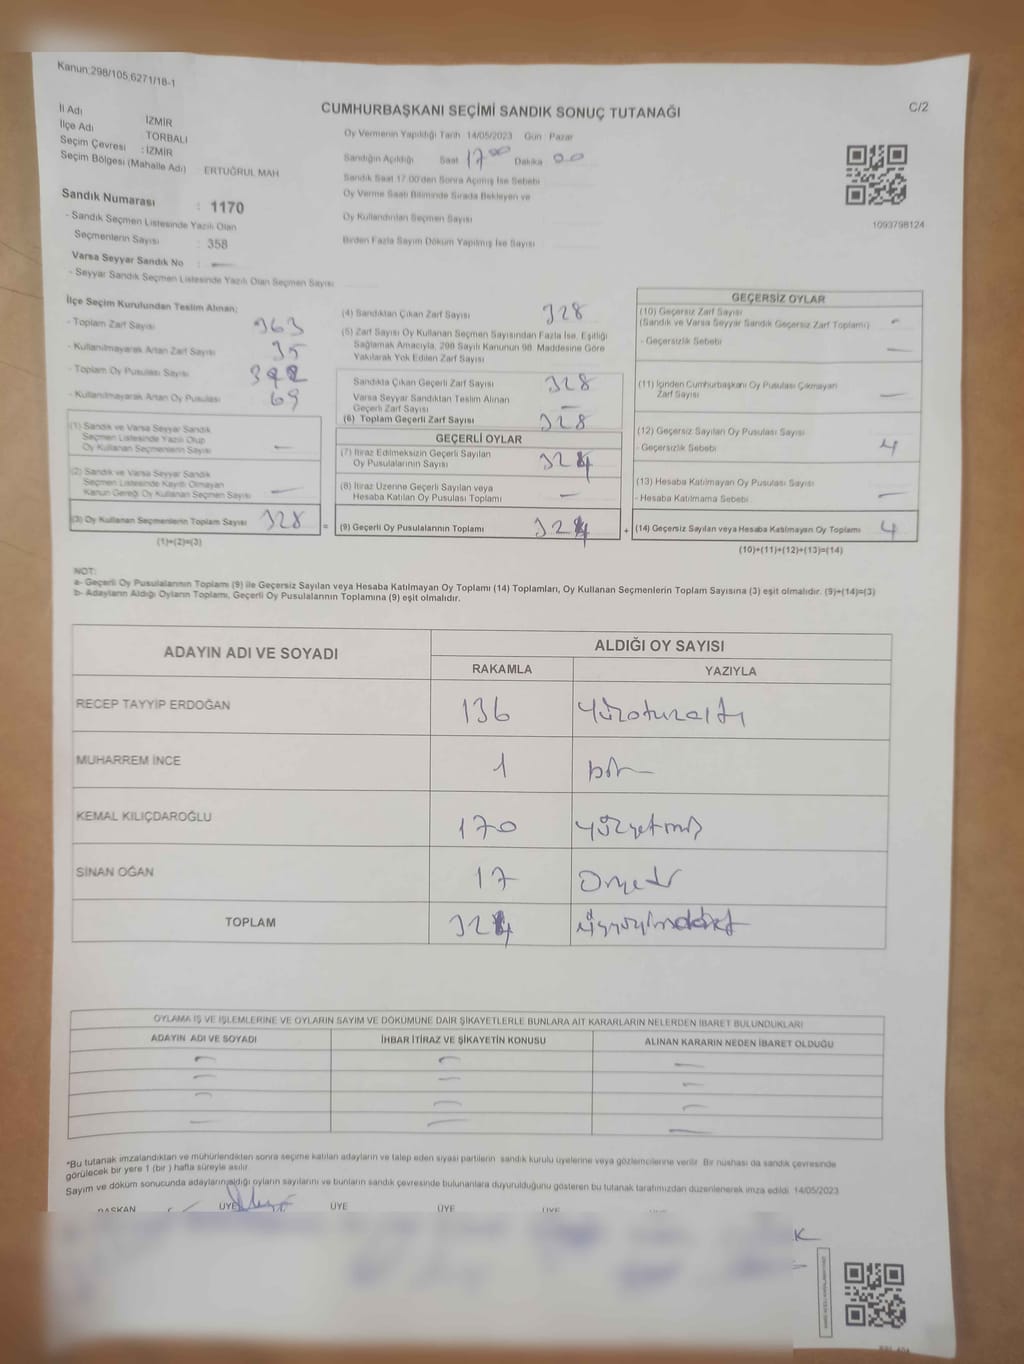 Kanun:298/105,6271/18-1
C/2
CUMHURBAŞKANI SEÇİMİ SANDIK SONUÇ TUTANAĞI
İl Adı İZMİR
İlçe Adı TORBALI
Seçim Çevresi : İZMİR
Seçim Bölgesi (Mahalle Adı) : ERTUĞRUL MAH
Sandık Numarası : 1170
- Sandık Seçmen Listesinde Yazılı Olan
Seçmenlerin Sayısı : 358
Varsa Seyyar Sandık No : —
- Seyyar Sandık Seçmen Listesinde Yazılı Olan Seçmen Sayısı
Oy Vermenin Yapıldığı Tarih 14/05/2023 Gün : Pazar
Sandığın Açıldığı Saat 17 00 Dakika 00
Sandık Saat 17.00'den Sonra Açılmış İse Sebebi
Oy Verme Saati Bitiminde Sırada Bekleyen ve
Oy Kullandırılan Seçmen Sayısı
Birden Fazla Sayım Döküm Yapılmış İse Sayısı
1093798124
İlçe Seçim Kurulundan Teslim Alınan;
- Toplam Zarf Sayısı 363
- Kullanılmayarak Artan Zarf Sayısı 35
- Toplam Oy Pusulası Sayısı
- Kullanılmayarak Artan Oy Pusulası 69
(1) Sandık ve Varsa Seyyar Sandık
Seçmen Listesinde Yazılı Olup
Oy Kullanan Seçmenlerin Sayısı —
(2) Sandık ve Varsa Seyyar Sandık
Seçmen Listesinde Kayıtlı Olmayan
Kanun Gereği Oy Kullanan Seçmen Sayısı —
(3) Oy Kullanan Seçmenlerin Toplam Sayısı 328 =
(1)+(2)=(3)
(4) Sandıktan Çıkan Zarf Sayısı 328
(5) Zarf Sayısı Oy Kullanan Seçmen Sayısından Fazla İse, Eşitliği
Sağlamak Amacıyla, 298 Sayılı Kanunun 98. Maddesine Göre
Yakılarak Yok Edilen Zarf Sayısı
Sandıkta Çıkan Geçerli Zarf Sayısı 328
Varsa Seyyar Sandıktan Teslim Alınan
Geçerli Zarf Sayısı —
(6) Toplam Geçerli Zarf Sayısı 328
GEÇERLİ OYLAR
(7) İtiraz Edilmeksizin Geçerli Sayılan
Oy Pusulalarının Sayısı 324
(8) İtiraz Üzerine Geçerli Sayılan veya
Hesaba Katılan Oy Pusulası Toplamı —
(9) Geçerli Oy Pusulalarının Toplamı 324 +
GEÇERSİZ OYLAR
(10) Geçersiz Zarf Sayısı
(Sandık ve Varsa Seyyar Sandık Geçersiz Zarf Toplamı) -
- Geçersizlik Sebebi —
(11) İçinden Cumhurbaşkanı Oy Pusulası Çıkmayan
Zarf Sayısı —
(12) Geçersiz Sayılan Oy Pusulası Sayısı
- Geçersizlik Sebebi 4
(13) Hesaba Katılmayan Oy Pusulası Sayısı
- Hesaba Katılmama Sebebi —
(14) Geçersiz Sayılan veya Hesaba Katılmayan Oy Toplamı 4
(10)+(11)+(12)+(13)=(14)
NOT:
a- Geçerli Oy Pusulalarının Toplamı (9) ile Geçersiz Sayılan veya Hesaba Katılmayan Oy Toplamı (14) Toplamları, Oy Kullanan Seçmenlerin Toplam Sayısına (3) eşit olmalıdır. (9)+(14)=(3)
b- Adayların Aldığı Oyların Toplamı, Geçerli Oy Pusulalarının Toplamına (9) eşit olmalıdır.
ADAYIN ADI VE SOYADI ALDIĞI OY SAYISI
RAKAMLA YAZIYLA
RECEP TAYYİP ERDOĞAN 136 Yüzotuzaltı
MUHARREM İNCE 1 bir
KEMAL KILIÇDAROĞLU 170 Yüzyetmiş
SİNAN OĞAN 17 Onyedi
TOPLAM 324 üçyüzyirmidört
OYLAMA İŞ VE İŞLEMLERİNE VE OYLARIN SAYIM VE DÖKÜMÜNE DAİR ŞİKAYETLERLE BUNLARA AİT KARARLARIN NELERDEN İBARET BULUNDUKLARI
ADAYIN ADI VE SOYADI İHBAR İTİRAZ VE ŞİKAYETİN KONUSU ALINAN KARARIN NEDEN İBARET OLDUĞU
— — —
— — —
— — —
— — —
*Bu tutanak imzalandıktan ve mühürlendikten sonra seçime katılan adayların ve talep eden siyasi partilerin sandık kurulu üyelerine veya gözlemcilerine verilir. Bir nushası da sandık çevresinde
görülecek bir yere 1 (bir ) hafta süreyle asılır.
Sayım ve döküm sonucunda adayların aldığı oyların sayılarını ve bunların sandık çevresinde bulunanlara duyurulduğunu gösteren bu tutanak tarafımızdan düzenlenerek imza edildi. 14/05/2023
BAŞKAN ÜYE ÜYE ÜYE ÜYE